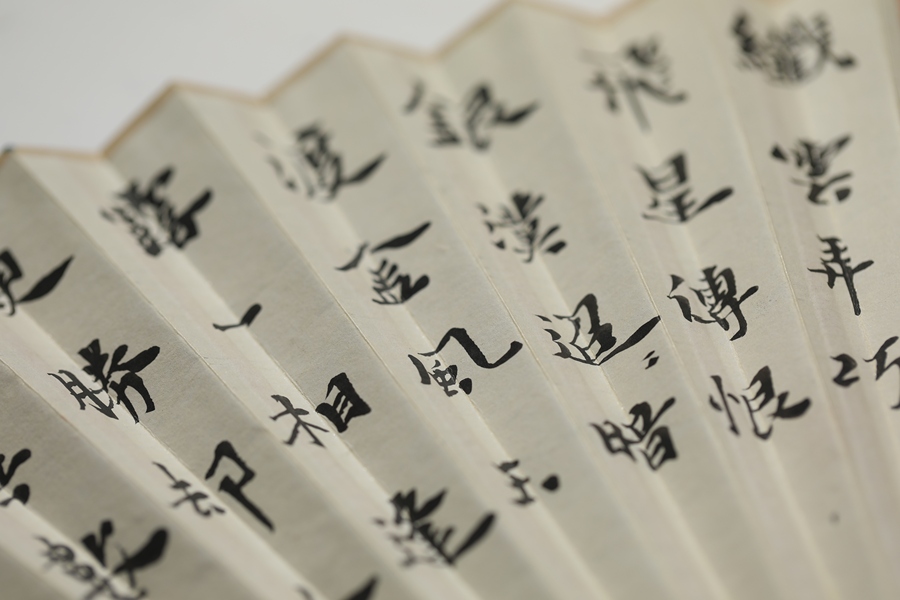 纖雲弄巧
飛星傳恨
銀漢迢〻暗
度金風玉
露一相逢
便勝卻
數